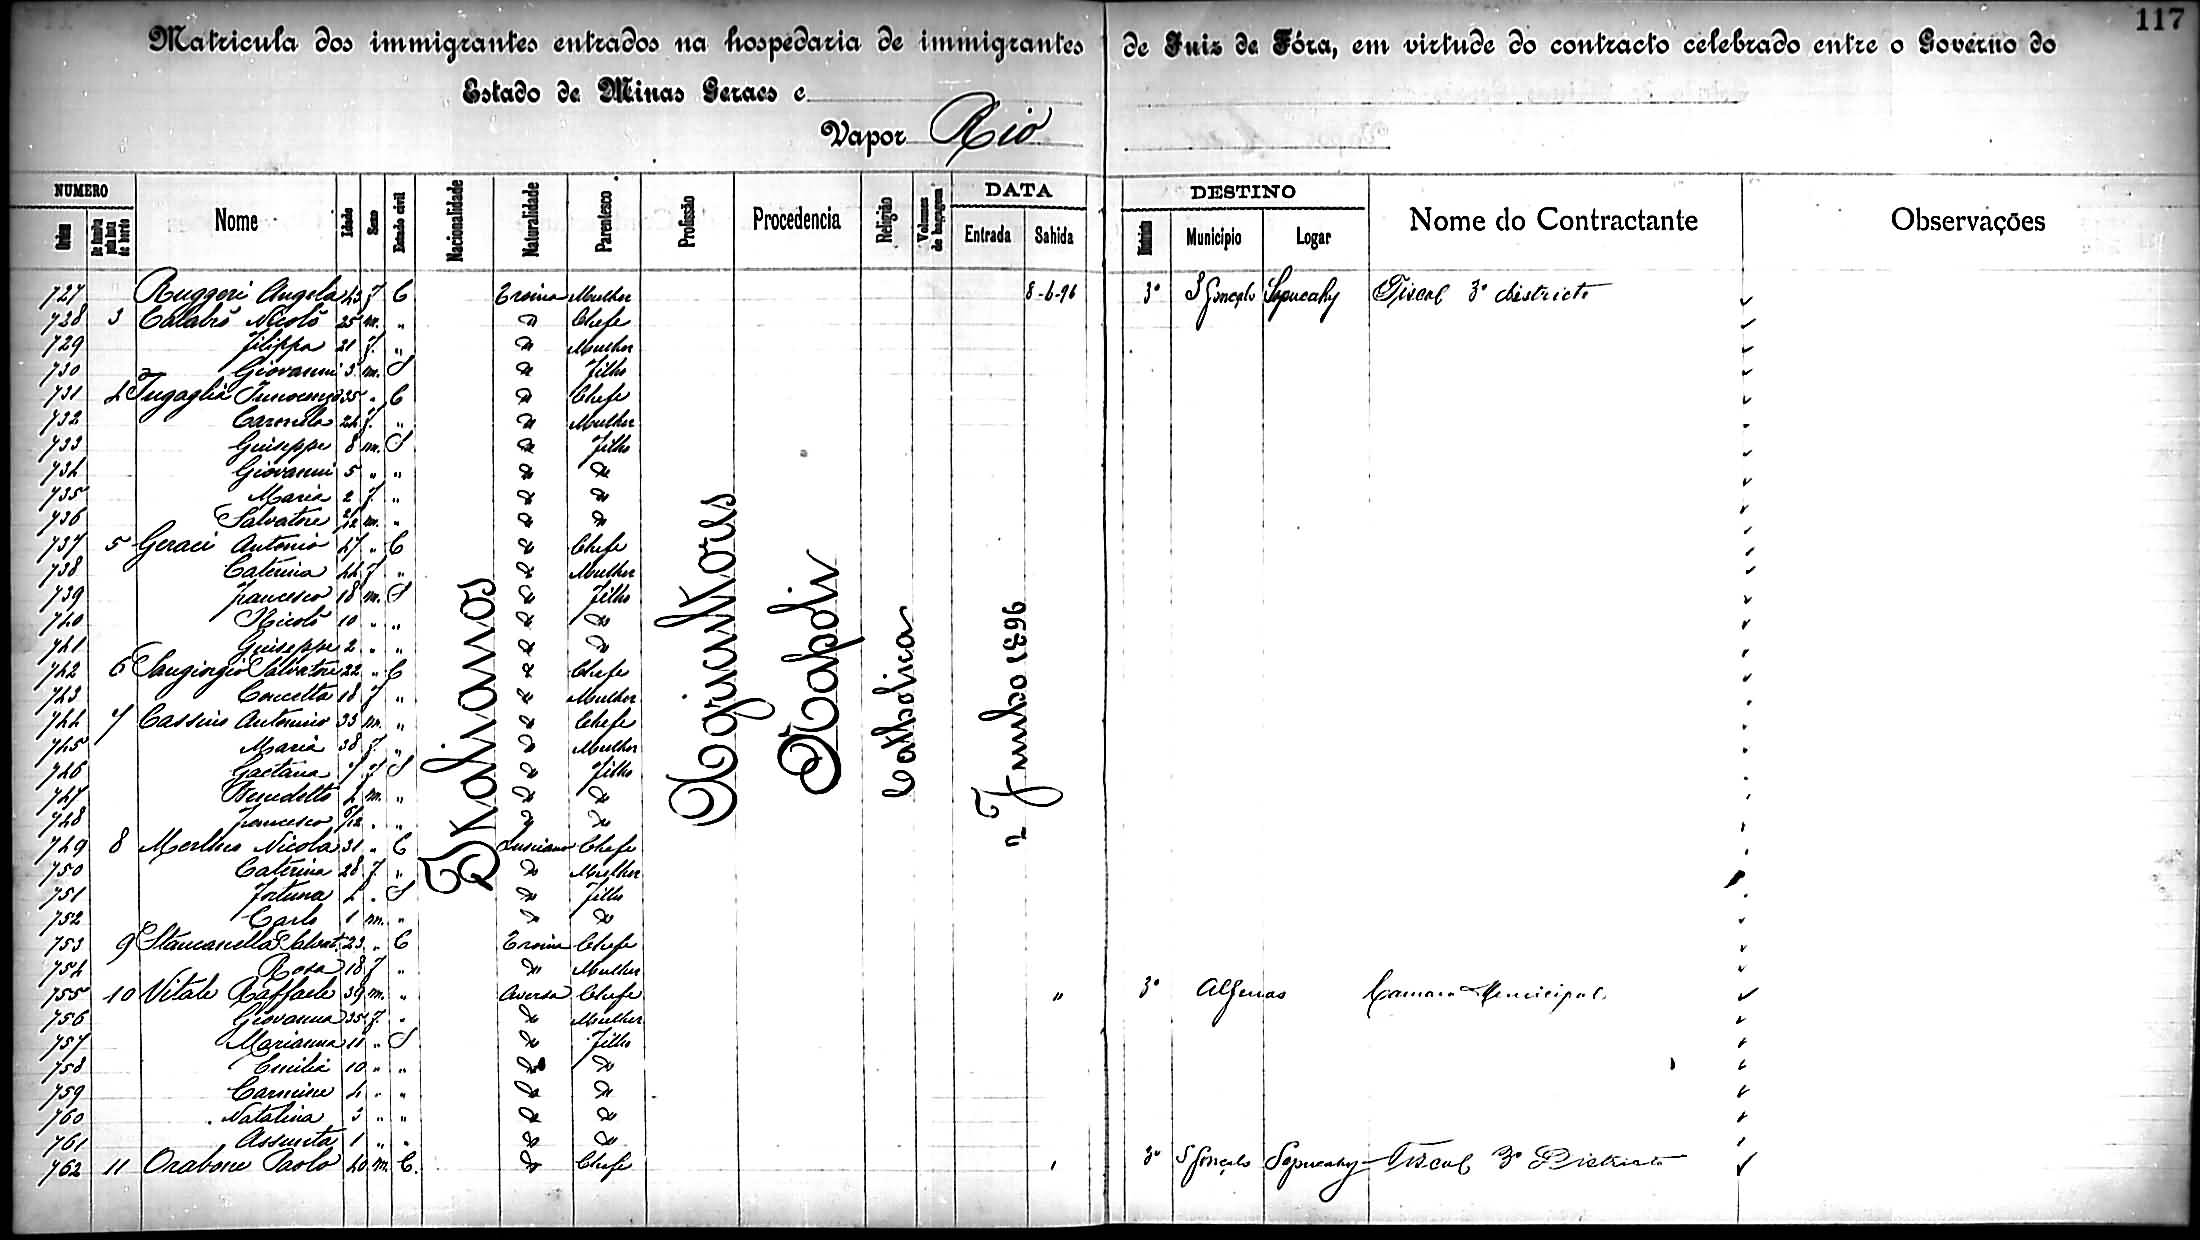 117
Matricula dos immigrantes entrados na hospedaria de immigrantes de Juiz de Fóra, em virtude do contracto celebrado entre o Governo do
Estado de Minas Geraes e
Vapor Rio
NUMERO DATA DESTINO
Ordem Nome Idade Sexo Estado civil Nacionalidade Naturalidade Parentesco Profissão Procedencia Religião Volumes de bagagem Entrada Sahida Districto Municipio Logar Nome do Contractante Observações
Italianos
Agricultores
Napoli
Catholica
2 Junho 1896
727 Ruggeri Angela 43 f C Troina Mulher 8-6-96 3º S Gonçalo Sapucahy Fiscal 3º districto
728 3 Calabrò Nicolò 25 m. " " Chefe
729 Filippa 21 f. " " Mulher
730 Giovanni 3 m. S " Filho
731 4 Fugaglia Innocenzo 35 " C " Chefe
732 Carmela 24 f. " " Mulher
733 Guiseppe 8 m. S " Filho
734 Giovanni 5 " " " "
735 Maria 2 f. " " "
736 Salvatore 2/12 m. " " "
737 5 Geraci Antonio 47 " C " Chefe
738 Caterina 44 f " " Mulher
739 Francesco 18 m. S " Filho
740 Nicolò 10 " " " "
741 Guiseppe 2 " " " "
742 6 Sangiorgio Salvatore 22 " C " Chefe
743 Concetta 18 f " " Mulher
744 7 Cassino Antonino 33 m. " " Chefe
745 Maria 38 f. " " Mulher
746 Gaetana 7 f S " Filho
747 Benedetto 4 m. " " "
748 Francesco 6/12 " " " "
749 8 Nicola 31 " C Lusciano Chefe
750 Caterina 28 f. " " Mulher
751 Fortuna 4 " S " Filho
752 Carlo 1 m. " " "
753 9 Stancanella Salvat. 23 " C Troina Chefe
754 Rosa 18 f " " Mulher
755 10 Vitale Raffaele 39 m. " Aversa Chefe " 3º Alfenas Camara Municipal
756 Giovanna 35 f. " " Mulher
757 Marianna 11 " S " Filho
758 Emilia 10 " " " "
759 Carmine 4 " " " "
760 Natalina 3 " " " "
761 Assunta 1 " " " "
762 11 Orabone Paolo 40 m. C. " Chefe " 3º S Gonçalo Sapucahy Fiscal 3º Districto